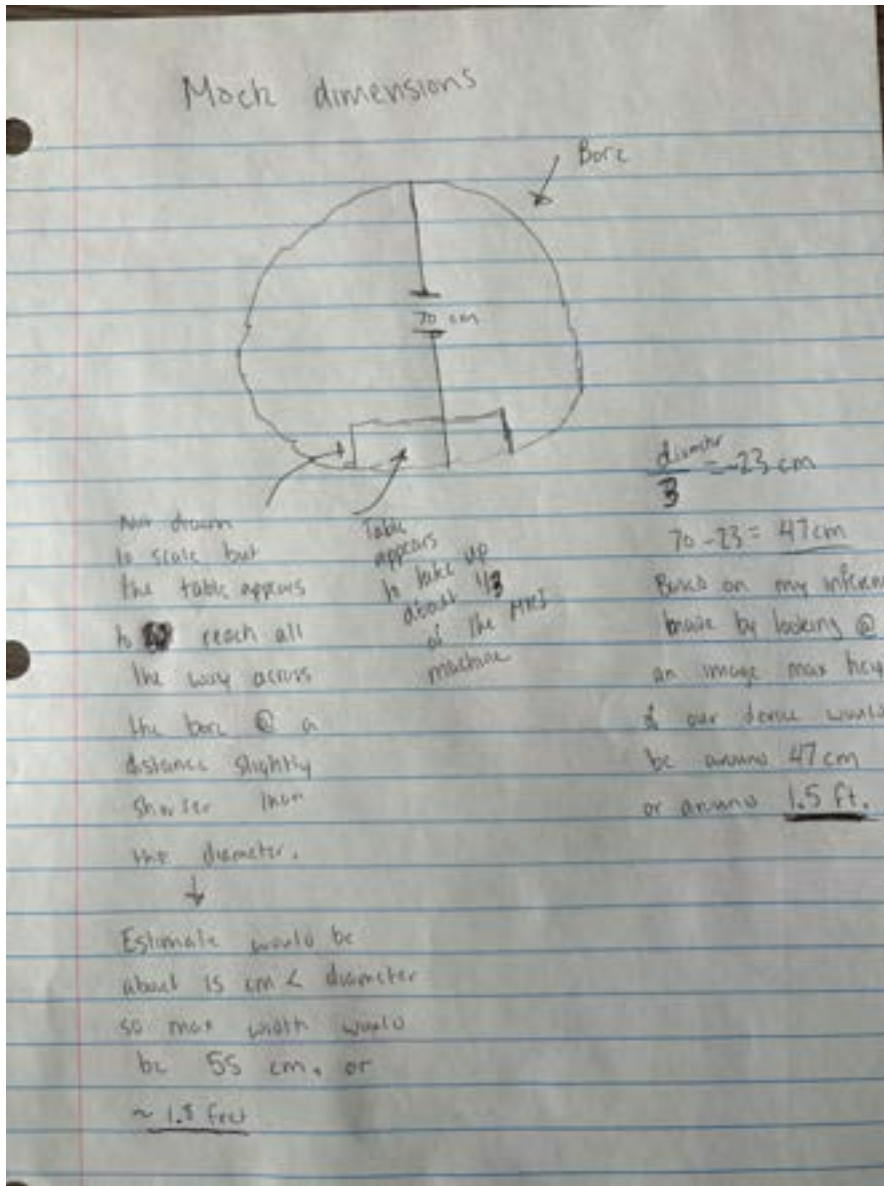 Mock dimensions
Bore
70 cm
Not drawn
to scale but
the table appears
to reach all
the way across
the bore @ a
distance slightly
shorter than
the diameter.
Estimate would be
about 15 cm < diameter
so max width would
be 55 cm, or
~ 1.8 feet
Table
appears
to take up
about 1/3
of the MRI
machine
diameter
3
= ~23 cm
70 - 23 = 47cm
Based on my
made by looking @
an image max
of our device would
be around 47 cm
or around 1.5 ft.